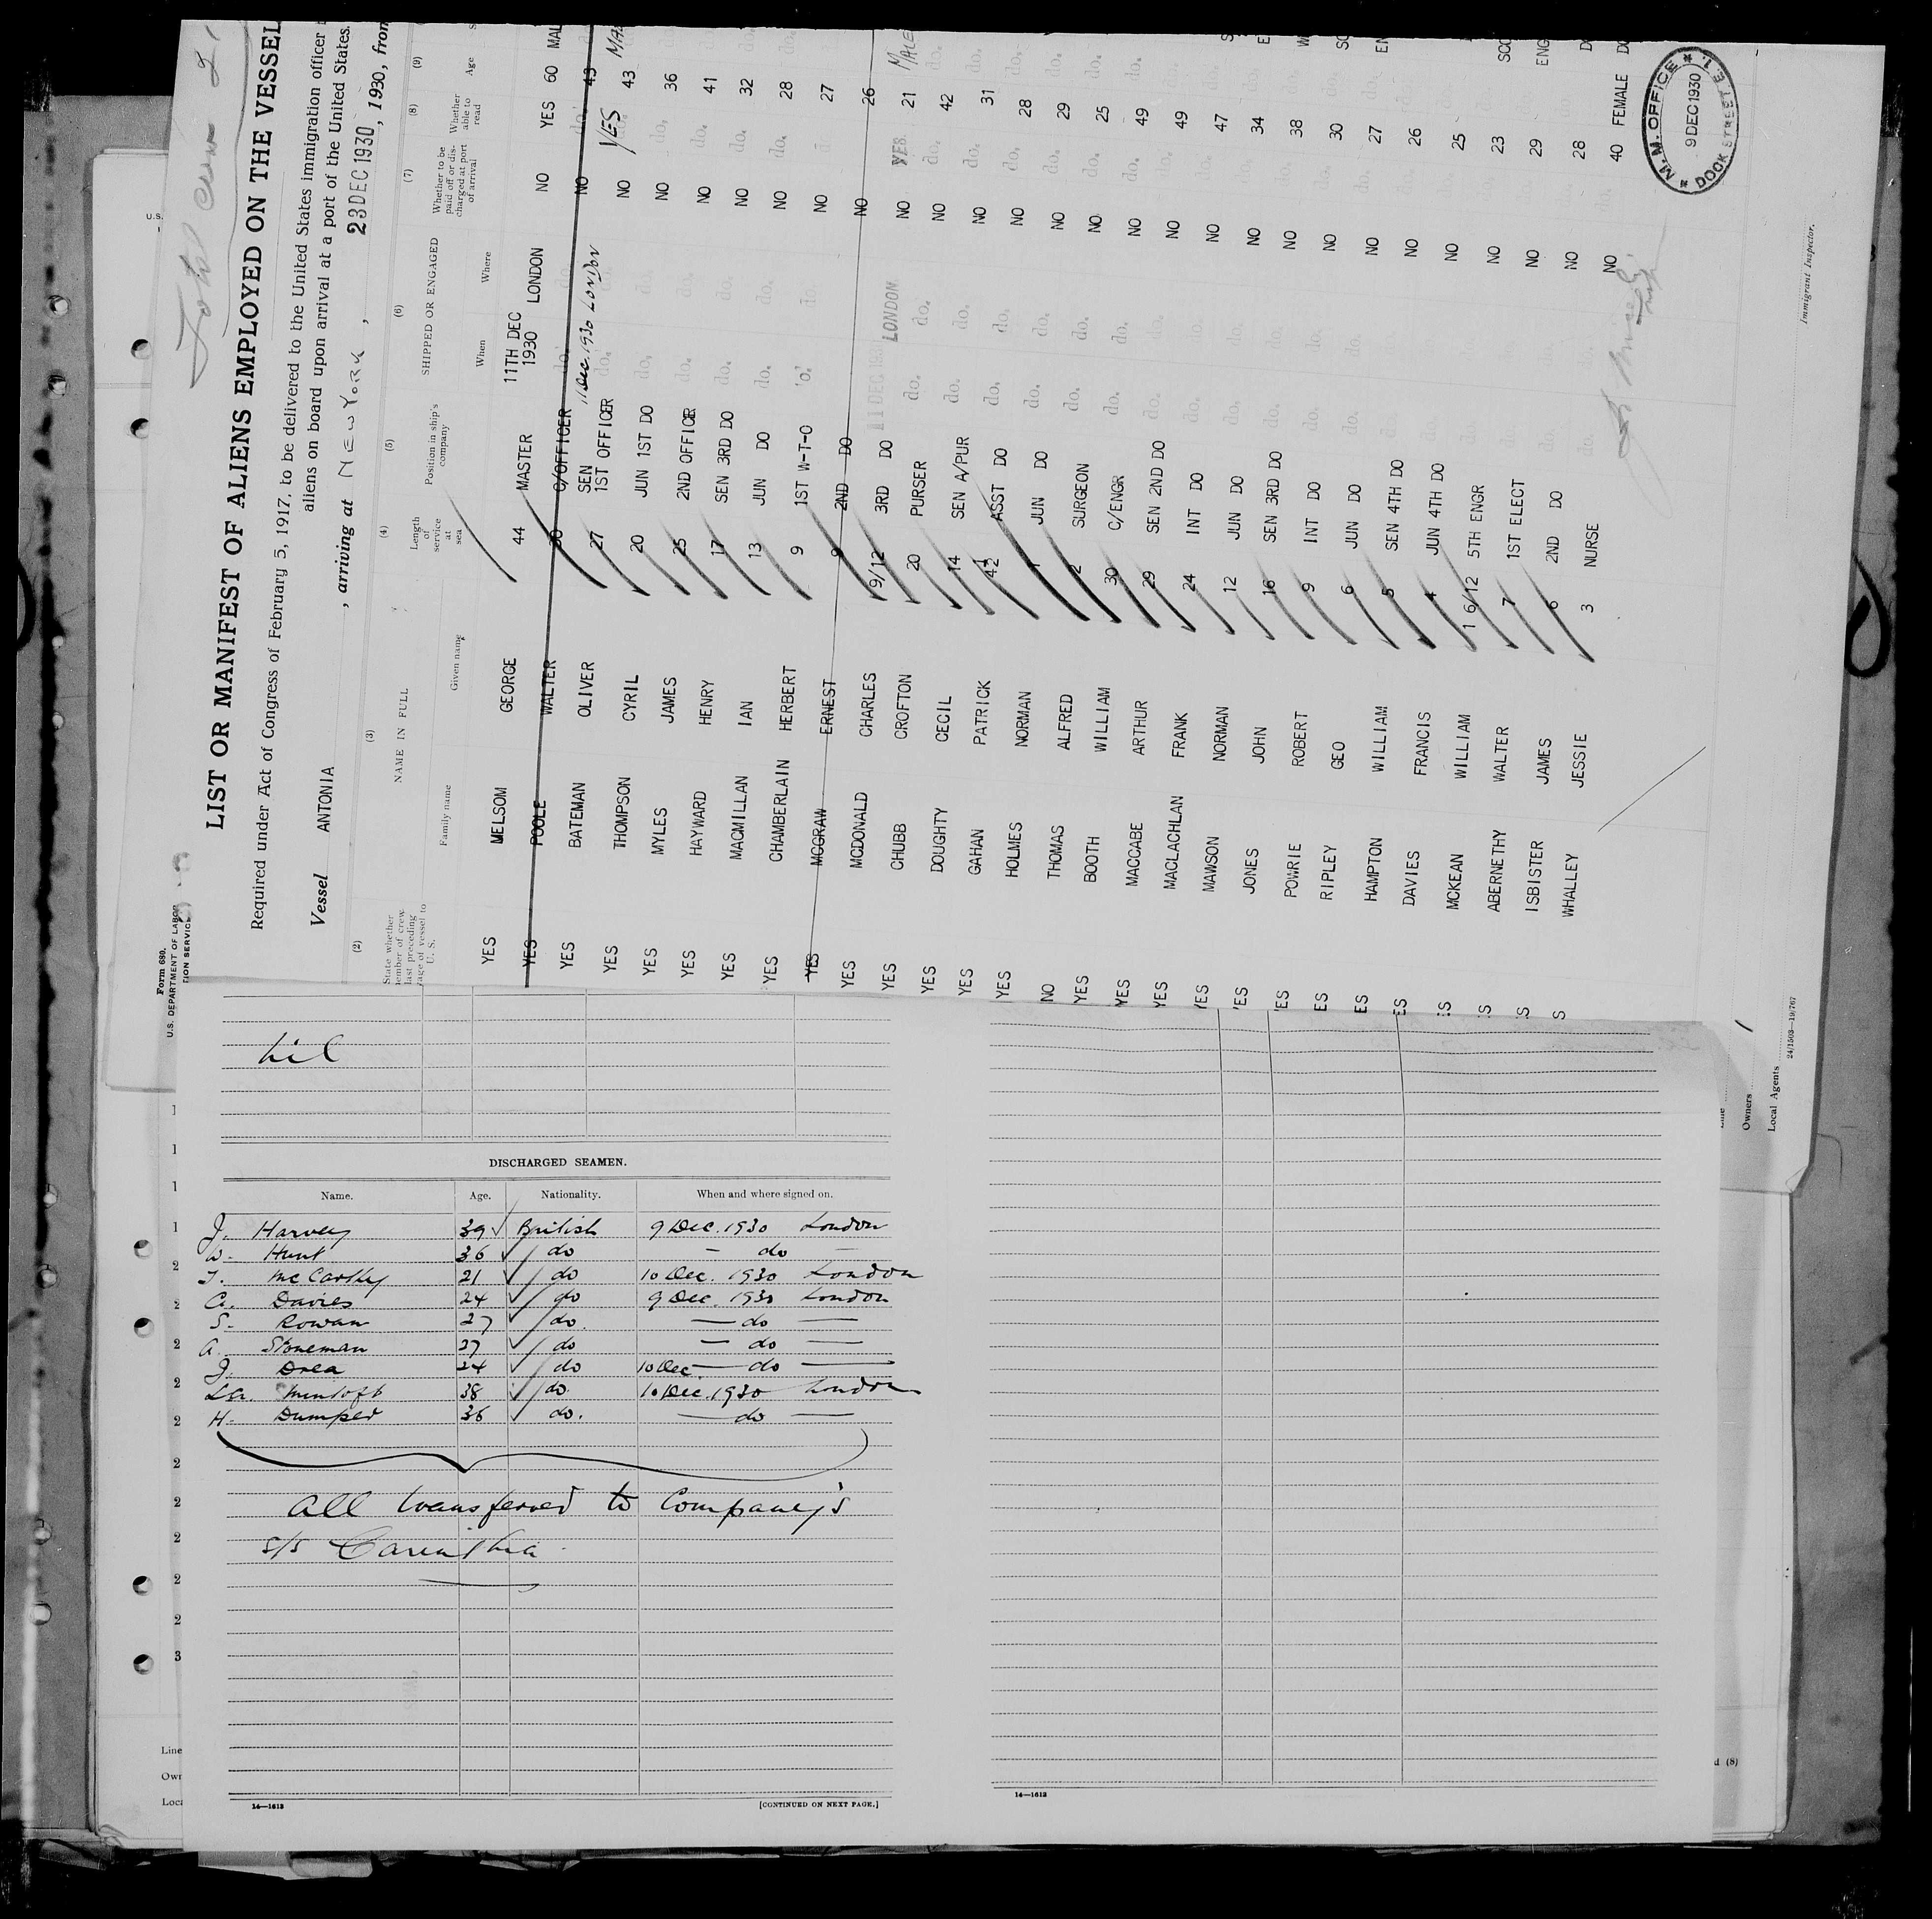 LIST OR MANIFEST OF ALIENS EMPLOYED ON THE VESSEL
Required under Act of Congress of February 5, 1917, to be delivered to the United States immigration officer
aliens on board upon arrival at a port of the United States.
Vessel ANTONIA , arriving at NEW YORK , 23 DEC 1930, 1930, from
(2) (3) (4) (5) (6) (7) (8) (9)
NAME IN FULL SHIPPED OR ENGAGED
Family name Given name Length of service at sea Position in ship's company When Where Whether to be paid off or discharged at port of arrival Whether able to read Age
YES MELSOM GEORGE 44 MASTER 11TH DEC 1930 LONDON NO YES 60
YES POOLE WALTER 30 C/OFFICER do. do. NO do. 43
YES BATEMAN OLIVER 27 SEN 1ST OFFICER 11 Dec. 1930 LONDON NO YES 43
YES THOMPSON CYRIL 20 JUN 1ST DO do. do. NO do. 36
YES MYLES JAMES 25 2ND OFFICER do. do. NO do. 41
YES HAYWARD HENRY 17 SEN 3RD DO do. do. NO do. 32
YES MACMILLAN IAN 13 JUN DO do. do. NO do. 28
YES CHAMBERLAIN HERBERT 9 1ST W-T-O do. NO do. 27
YES MCGRAW ERNEST 9 2ND DO NO 26
YES MCDONALD CHARLES 9/12 3RD DO 11 DEC 1930 LONDON. NO YES. 21 MALE
YES CHUBB CROFTON 20 PURSER do. do. NO do. 42 do.
YES DOUGHTY CECIL 14 SEN A/PUR do. do. NO do. 31 do.
YES GAHAN PATRICK ASST DO do. do. NO do. 28 do.
YES HOLMES NORMAN 1 JUN DO do. do. NO do. 29 do.
NO THOMAS ALFRED 2 SURGEON do. do. NO do. 25 do.
YES BOOTH WILLIAM 30 C/ENGR do. do. NO do. 49 do.
YES MACCABE ARTHUR 29 SEN 2ND DO do. do. NO do. 49
YES MACLACHLAN FRANK 24 INT DO do. do. NO do. 47
YES MAWSON NORMAN 12 JUN DO do. do. NO do. 34
YES JONES JOHN 16 SEN 3RD DO do. do. NO do. 38
ES POWRIE ROBERT 9 INT DO do. do. NO do. 30
ES RIPLEY GEO 6 JUN DO do. do. NO do. 27
ES HAMPTON WILLIAM 5 SEN 4TH DO do. NO 26
ES DAVIES FRANCIS 4 JUN 4TH DO do. NO 25
ES MCKEAN WILLIAM 1 6/12 5TH ENGR do. NO 23
S ABERNETHY WALTER 7 1ST ELECT NO 29
S ISBISTER JAMES 6 2ND DO do. NO 28
S WHALLEY JESSIE 3 NURSE do. NO 40 FEMALE
M.M. OFFICE
9 DEC 1930
DOCK STREET E.1.
Immigrant Inspector.
Form 680.
U.S. DEPARTMENT OF LABOR
Owners
Local Agents
24/1503—19/767
nil
DISCHARGED SEAMEN.
Name. Age. Nationality. When and where signed on.
J. Harvey 39 British 9 Dec. 1930 London
W. Hunt 36 do — do —
T. McCarthy 21 do 10 Dec. 1930 London
A. Davies 24 do 9 Dec. 1930 London
S. Rowan 27 do. — do —
A. Stoneman 27 do — do —
J. Drea 24 do 10 Dec — do —
38 do. 10 Dec. 1930 London
H. Dumper 36 do. — do —
All transferred to Company's
s/s Carinthia
14—1613 [CONTINUED ON NEXT PAGE.]
14—1613